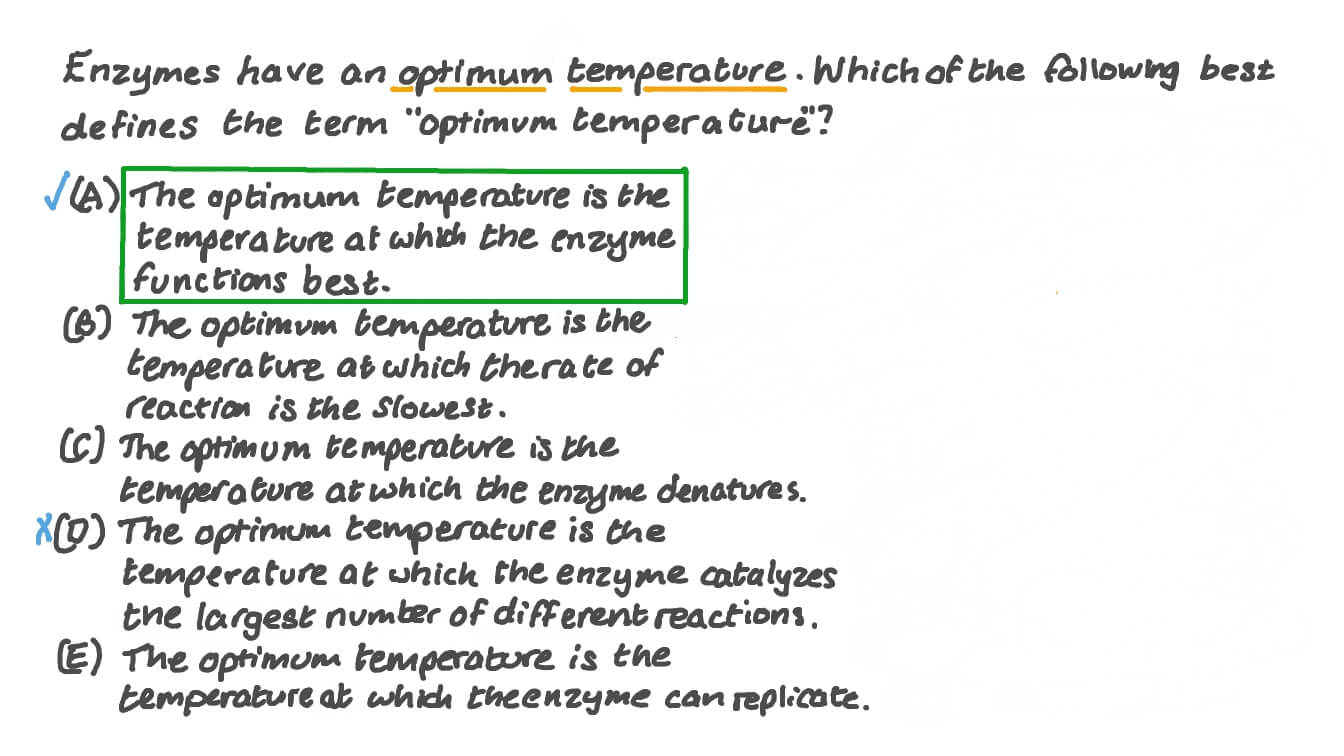 Enzymes have an optimum temperature. Which of the following best
defines the term "optimum temperature"?
✓(A) The optimum temperature is the
temperature at which the enzyme
functions best.
(B) The optimum temperature is the
temperature at which the rate of
reaction is the slowest.
(C) The optimum temperature is the
temperature at which the enzyme denatures.
X(D) The optimum temperature is the
temperature at which the enzyme catalyzes
the largest number of different reactions.
(E) The optimum temperature is the
temperature at which the enzyme can replicate.